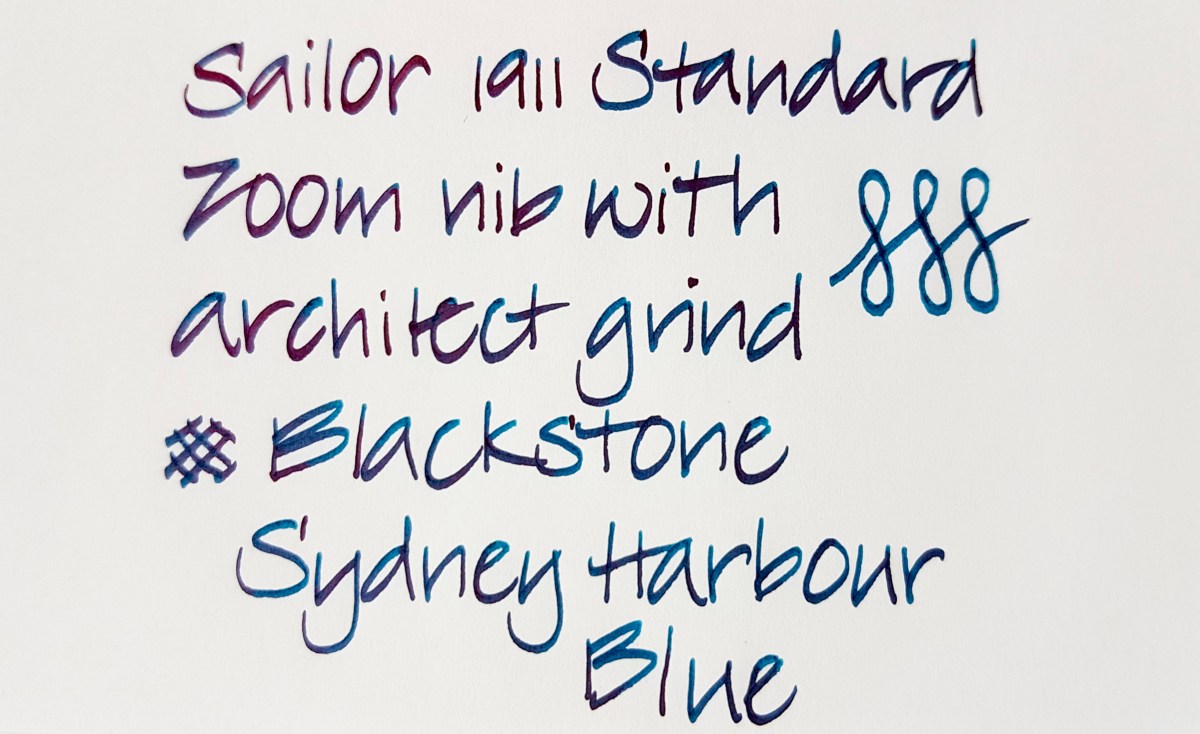 Sailor 1911 Standard
Zoom nib with
architect grind
Blackstone
Sydney Harbour
Blue